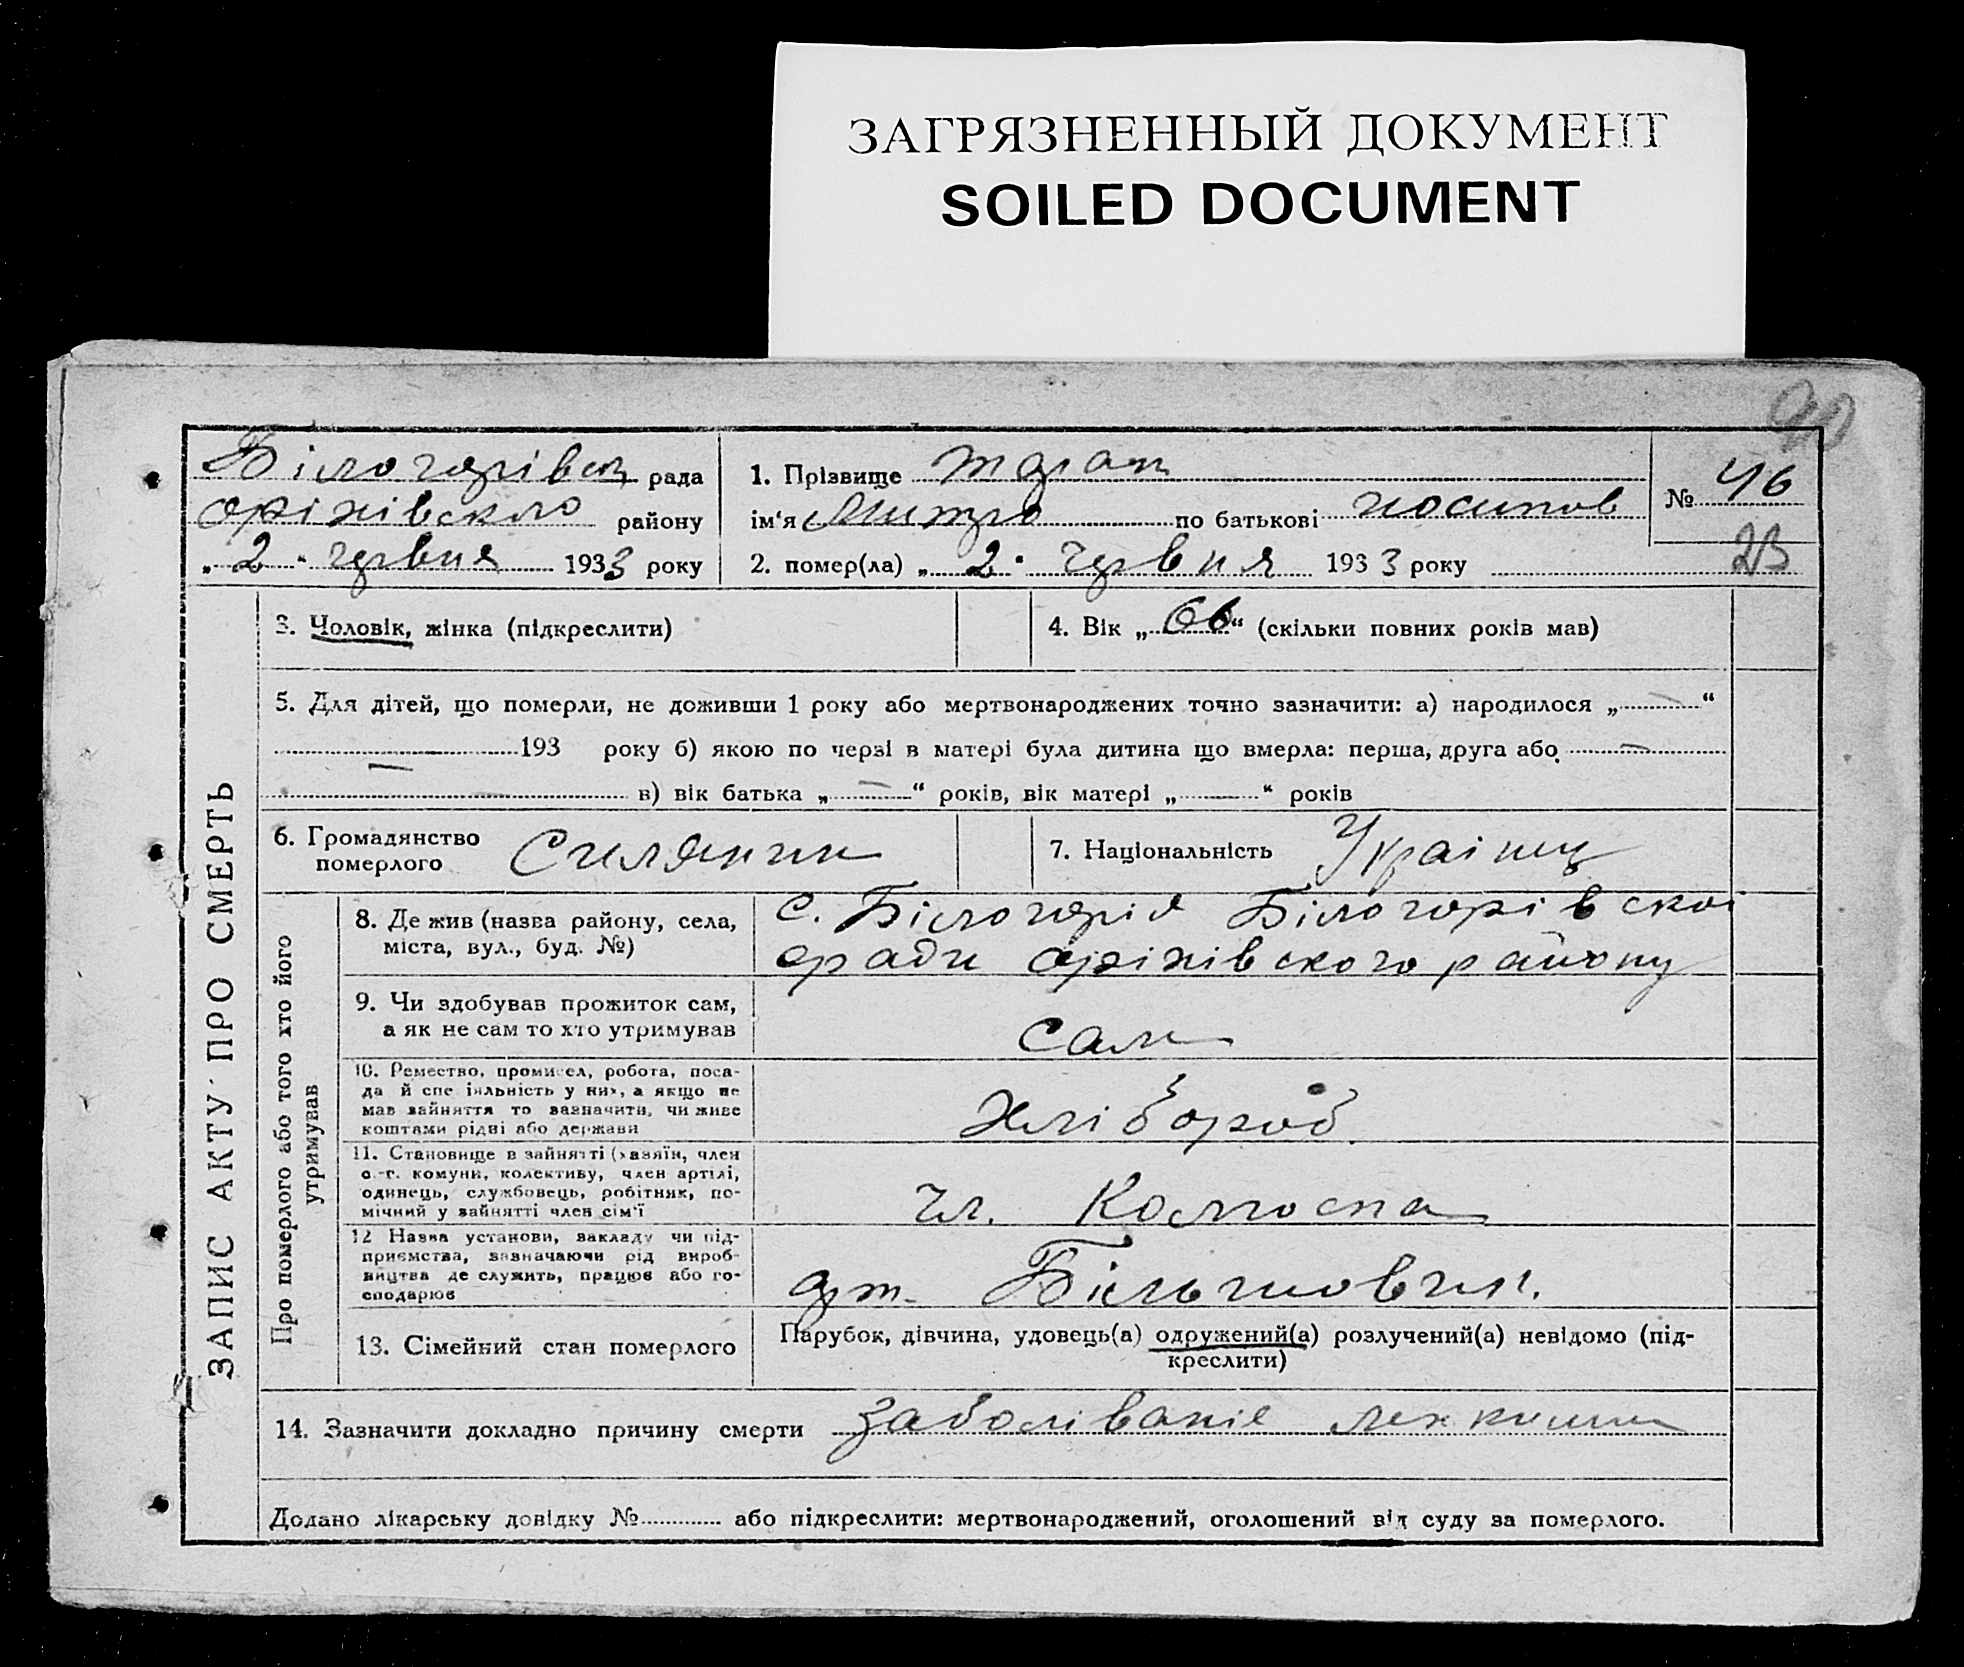 ЗАГРЯЗНЕННЫЙ ДОКУМЕНТ
SOILED DOCUMENT
90
Білогорівськ рада
оріхівского району
„2“ червня 1933 року
1. Прізвище
ім'я Митро по батькові иосипов
2. помер(ла) „2“ червня 1933 року
№ 46
23
ЗАПИС АКТУ ПРО СМЕРТЬ
3. Чоловік, жінка (підкреслити)
4. Вік „66“ (скільки повних років мав)
5. Для дітей, що померли, не доживши 1 року або мертвонароджених точно зазначити: а) народилося „—“
— 193 року б) якою по черзі в матері була дитина що вмерла: перша, друга або —
— в) вік батька „—“ років, вік матері „—“ років
6. Громадянство
померлого Силянин
7. Національність Українц
Про померлого або того хто його
утримував
8. Де жив (назва району, села,
міста, вул., буд. №)
с. Білогоріа Білогорівскоі
ради оріхівского району
9. Чи здобував прожиток сам,
а як не сам то хто утримував
сам
10. Ремество, промисел, робота, поса-
да й спеціяльність у них, а якщо не
мав зайняття то зазначити, чи живе
коштами рідні або держави
Хлібороб
11. Становище в зайнятті (хазяїн, член
с.-г. комуни, колективу, член артілі,
одинець, службовець, робітник, по-
мічний у зайнятті член сім'ї
чл. Колгоспа
12 Назва установи, закладу чи під-
приємства, зазначаючи рід вироб-
ництва де служить, працює або го-
сподарює
арт. Більшовик.
13. Сімейний стан померлого
Парубок, дівчина, удовець(а) одружений(а) розлучений(а) невідомо (під-
креслити)
14. Зазначити докладно причину смерти заболіваніе лехкими
Додано лікарську довідку № або підкреслити: мертвонароджений, оголошений від суду за померлого.